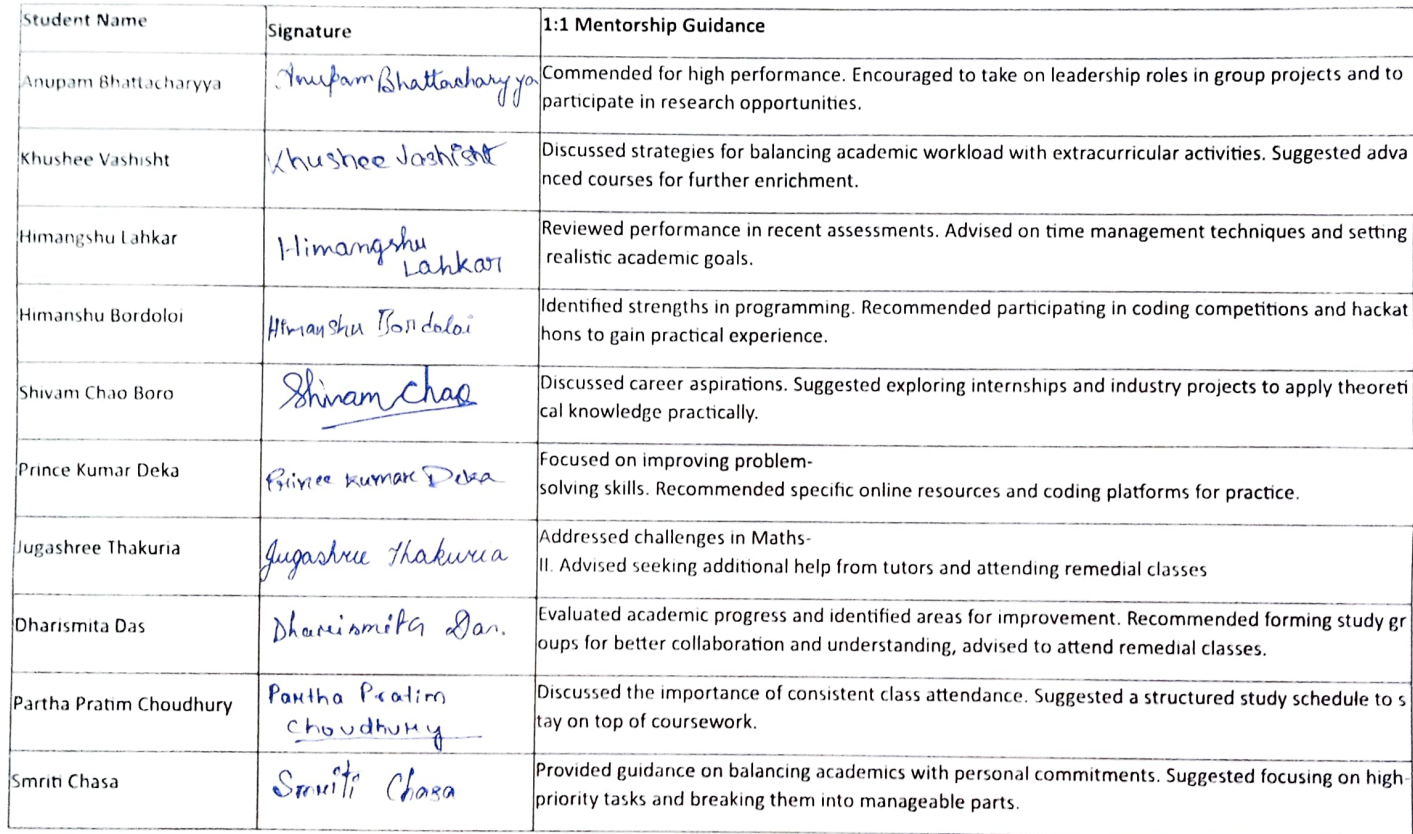 Student Name
Signature
1:1 Mentorship Guidance
Anupam Bhattacharyya
Anupam Bhattacharyya
Commended for high performance. Encouraged to take on leadership roles in group projects and to
participate in research opportunities.
Khushee Vashisht
Khushee Vashisht
Discussed strategies for balancing academic workload with extracurricular activities. Suggested adva
nced courses for further enrichment.
Himangshu Lahkar
Himangshu
Lahkar
Reviewed performance in recent assessments. Advised on time management techniques and setting
realistic academic goals.
Himanshu Bordoloi
Himanshu Bordoloi
Identified strengths in programming. Recommended participating in coding competitions and hackat
hons to gain practical experience.
Shivam Chao Boro
Shivam Chao
Discussed career aspirations. Suggested exploring internships and industry projects to apply theoreti
cal knowledge practically.
Prince Kumar Deka
Prince Kumar Deka
Focused on improving problem-
solving skills. Recommended specific online resources and coding platforms for practice.
Jugashree Thakuria
Jugashree Thakuria
Addressed challenges in Maths-
II. Advised seeking additional help from tutors and attending remedial classes
Dharismita Das
Dharismita Das.
Evaluated academic progress and identified areas for improvement. Recommended forming study gr
oups for better collaboration and understanding, advised to attend remedial classes.
Partha Pratim Choudhury
Partha Pratim
Choudhury
Discussed the importance of consistent class attendance. Suggested a structured study schedule to s
tay on top of coursework.
Smriti Chasa
Smriti Chasa
Provided guidance on balancing academics with personal commitments. Suggested focusing on high-
priority tasks and breaking them into manageable parts.